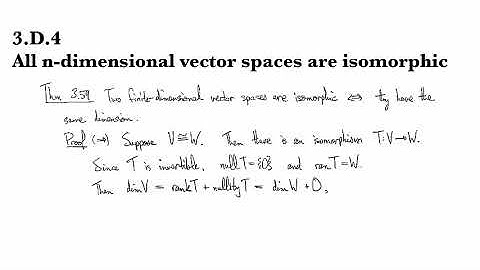 3.D.4
All n-dimensional vector spaces are isomorphic
Thm 3.59 Two finite-dimensional vector spaces are isomorphic ⇔ they have the
same dimension.
Proof (⇒) Suppose V≅W. Then there is an isomorphism T:V→W.
Since T is invertible, null T={0} and ran T=W.
Then dim V = rank T + nullity T = dim W + 0,